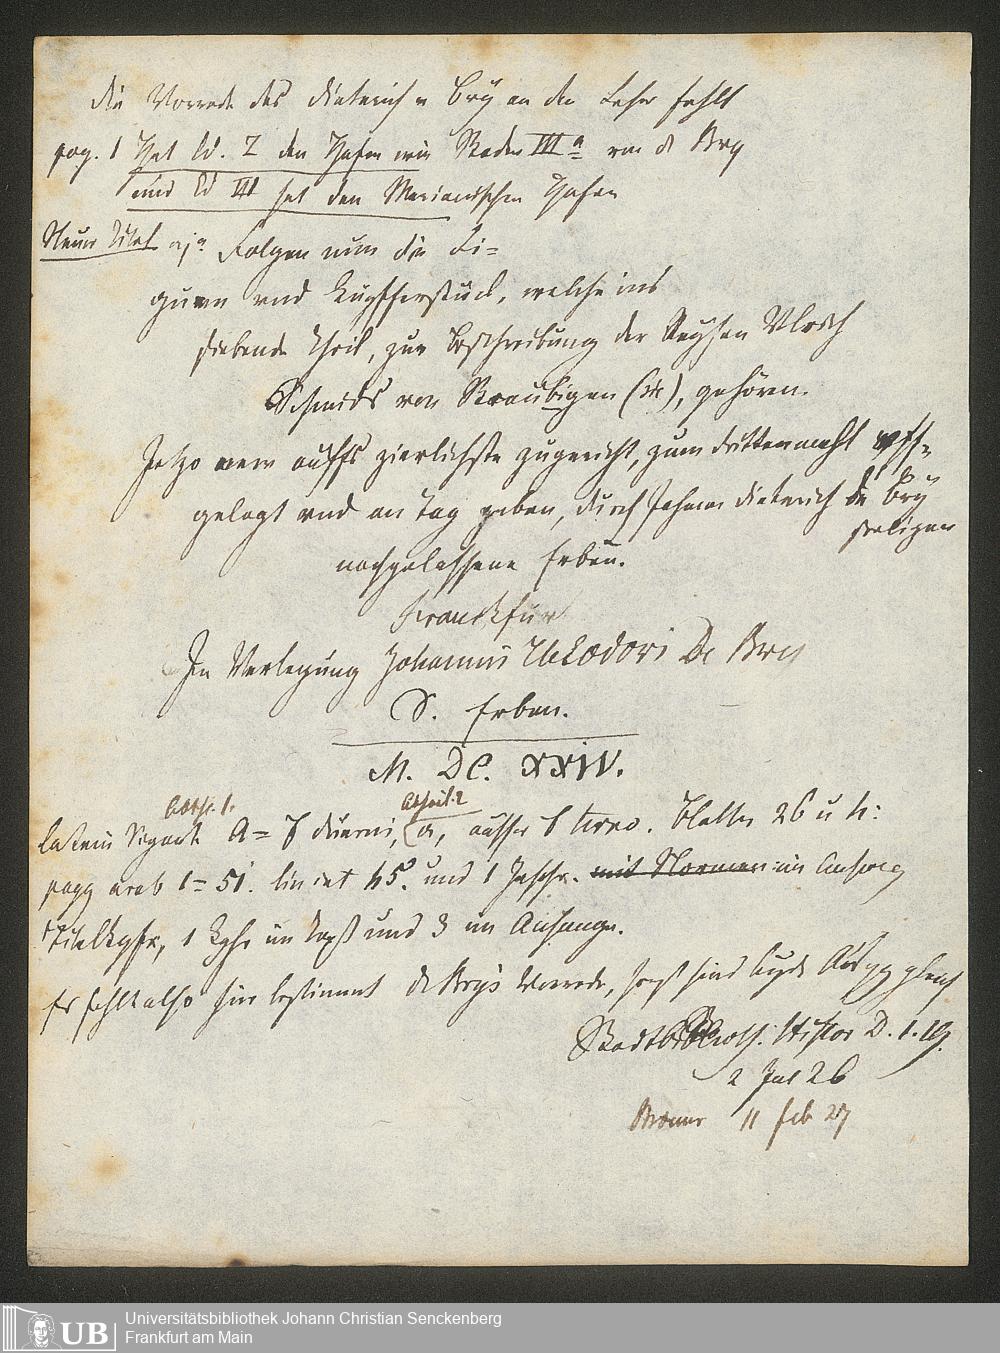 die Vorrede des Dieterich v Bry an den Leser fehlt
pag. 1 Hat Ed. I den Hafen wie Staden III a von d Bry
und Ed III hat den Merianischen Hafen
Neuer Titel aja Folgen nun die Fi=
guren vnd Kupfferstück, welche ins
siebende Theil, zur Beschreibung der Reysen Vlrich
Schmids von Straubigen (sic), gehören.
Jetzo new auffs zierlichste zugericht, zum drittenmahl vff=
gelegt vnd an Tag geben, durch Johann Dieterich de Bry
seeligen
nachgelassene Erben.
Franckfur
In Verlegung Johannis Theodori De Bry
S. Erben.
M. DC. XXIV.
Abth. 1. Abtheil. 2
Latein Signat A= duerni, a, ausser terno. Blatter 26 u h:
pagg arab 1= 51. und 1 mit Normen im Anhang
Titelkpfr, 1 Kpfr im Text und 3 im Anhange.
Es fehlt also hier bestimmt de Brys Vorrede, sonst sind beyde gleich
Stadtbiblioth. Histor D. 1.
2 Jul 26
11 Feb 27
Universitätsbibliothek Johann Christian Senckenberg
UB Frankfurt am Main